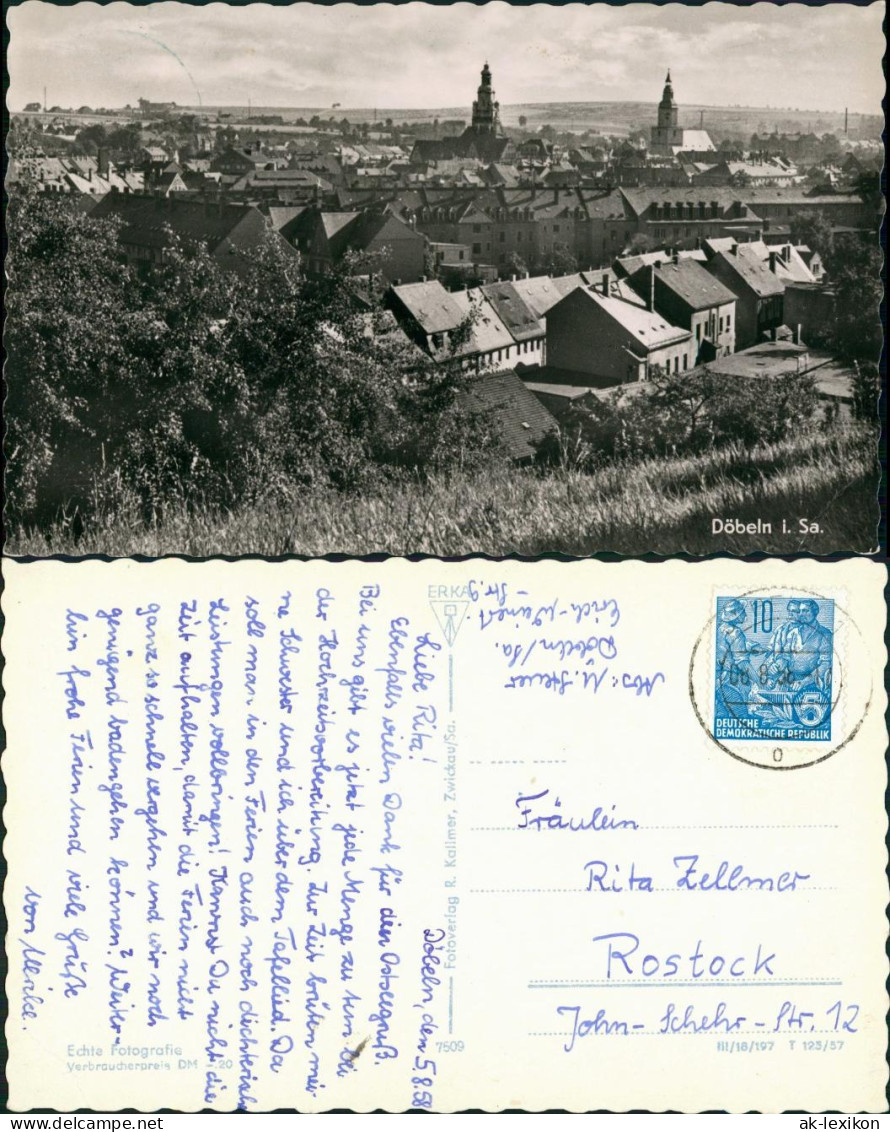 Döbeln i. Sa.
ERKA
Abs: U. Steuer
Döbeln/Sa.
Erich-Weinert-
Str. 9
Döbeln, den 5.8.58
Liebe Rita!
Ebenfalls vielen Dank für den Ostseegruß.
Bei uns gibt es jetzt jede Menge zu tun bei
der Hochzeitsvorbereitung. Zur Zeit brüten mei-
ne Schwester und ich über dem Tafellied. Da
soll man in den Ferien auch noch dichterisch
Leistungen vollbringen! Kannst Du nicht die
Zeit aufhalten, damit die Ferien nicht
ganz so schnell vergehen und wir noch
genügend badengehen können? Weiter-
hin frohe Ferien und viele Grüße
von
Fotoverlag R. Kallmer, Zwickau/Sa.
7509
Echte Fotografie
Verbraucherpreis DM -.20
10
5
DEUTSCHE
DEMOKRATISCHE REPUBLIK
Fräulein
Rita Zellmer
Rostock
John-Schehr-Str. 12
III/18/197 T 123/57
ak-lexikon